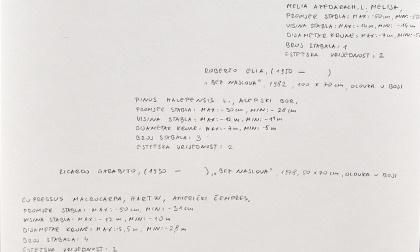 MELIA AZEDARACH, L. MELISA,
PROMJER STABLA: MAX: -50 cm, MINI:
VISINA STABLA: MAX: -14 m, MINI:
DIJAMETAR KRUNE: MAX: -7 m, MINI:
BROJ STABALA: 1
ESTETSKA VRIJEDNOST: 2
ROBERTO ELIA, (1950 - ) „BEZ NASLOVA", 1982, 100 x 70 cm, OLOVKA U BOJI
PINUS HALEPENSIS L., ALEPSKI BOR,
PROMJER STABLA: MAX: -30 cm, MINI: -28 cm
VISINA STABLA: MAX: -12 m, MINI: -11 m
DIJAMETAR KRUNE: MAX: -7 m, MINI: -5 m
BROJ STABALA: 3
ESTETSKA VRIJEDNOST: 2
RICARDO GARABITO, (1930 - ) „BEZ NASLOVA", 1978, 50 x 70 cm, OLOVKA U BOJI
CUPRESSUS MACROCARPA, HARTW,
PROMJER STABLA: MAX: -50 cm, MINI: -35 cm
VISINA STABLA: MAX: -12 m, MINI: -10 m
DIJAMETAR KRUNE: MAX: 5,5 m, MINI: -2,8 m
BROJ STABALA: 4
ESTETSKA VRIJEDNOST: 2